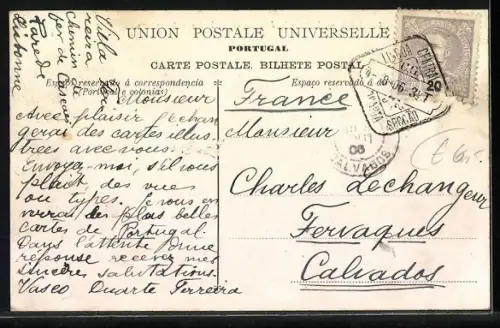 UNION POSTALE UNIVERSELLE
PORTUGAL
CARTE POSTALE. BILHETE POSTAL
Espaço reservado á correspondencia
(Portugal e colonias)
Espaço reservado á
Villa
Ferreira
Chemin de
fer de Cascaes
Parede
Lisbonne
Monsieur
Avec plaisir l'échan
gerai des cartes illus
trées avec vous.
Envoya-moi, s'il vous
plait, des vues
ou types. Je vous en
verrai des plus belles
cartes de Portugal
Dans l'attente d'une
réponse recevez mes
sincères salutations.
Vasco Duarte Ferreira
France
Monsieur
Charles Lechangeur
Fervaques
Calvados
CENTRAL
SECÇÃO
20
06
CALVADOS